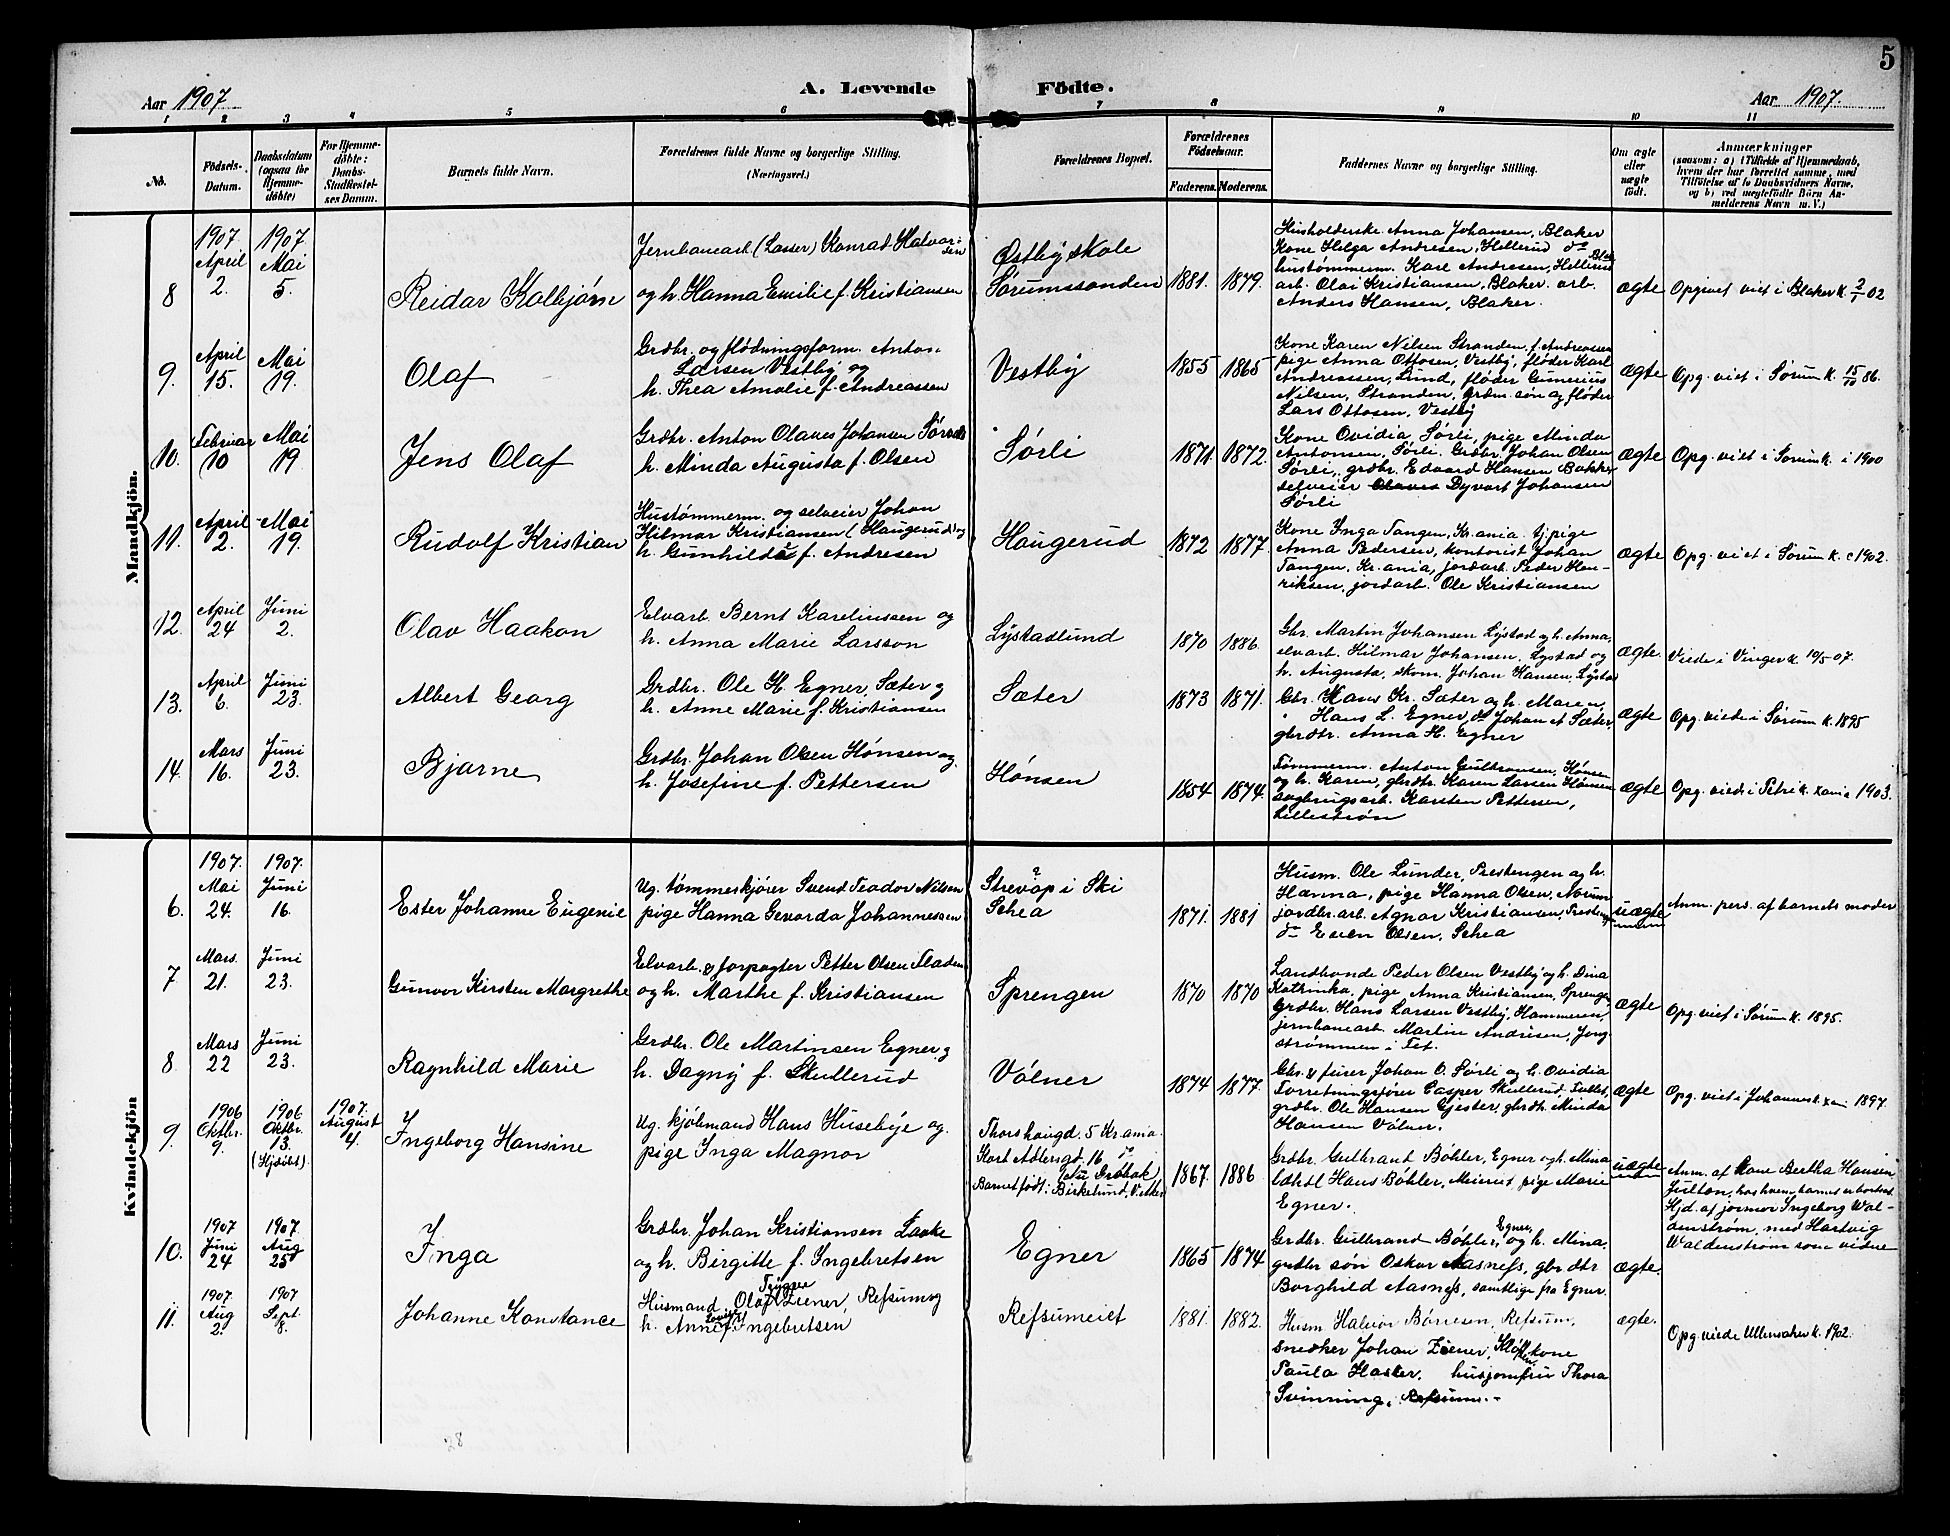 5
Aar 1907
A. Levende Födte.
Aar 1907.
1 2 3 4 5 6 7 8 9 10 11
No.
Födsels-
Datum.
Daabsdatum
(ogsaa for
Hjemme-
döbte)
For Hjemme-
döbte:
Daabs-
Stadfæstel-
ses Datum.
Barnets fulde Navn.
Forældrenes fulde Navne og borgerlige Stilling.
(Næringsvei.)
Forældrenes Bopæl.
Forældrenes
Födselsaar.
Faderens.
Moderens.
Faddernes Navne og borgerlige Stilling.
Om ægte
eller
uægte
födt.
Anmærkninger
(saasom: a) i Tilfælde af Hjemmedaab,
hvem der har forrettet samme, med
Tilföielse af to Daabsvidners Navne,
og b) ved uægtefödte Börn An-
melderens Navn m. V.)
Mandkjön.
8
1907.
April
2.
1907.
Mai
5.
Reidar Kolbjørn
Jernbanearb (Laster) Konrad Halvor-
sen
og h. Hanna Emilie f. Kristiansen
Østby skole
Sørumssanden
1881.
1879.
Husholderske Anna Johansen, Blaker
Kone Helga Andresen, Hellerud do
hustømmerm. Karl Andresen, Hellerud Blak.
arb. Olai Kristiansen, Blaker. arb.
Anders Hansen, Blaker.
ægte
Opgivet viet i Blaker k. 2/1 02
9.
April
15.
Mai
19.
Olaf
Grdbr. og flødningsform. Anton
Larsen Vestby og
h. Thea Amalie f. Andreassen
Vestby
1855
1865
Kone Karen Nilsen Stranden, f. Andreassen
pige Anna Ottosen, Vestby, fløder Karl
Andreassen, Lund, fløder Gunerius
Nilsen, Stranden, grdm. søn og fløder
Lars Ottosen, Vestby
ægte
Opg. viet i Sørum k. 15/10 86.
10.
Februar
10
Mai
19
Jens Olaf
Grdbr. Anton Olaves Johansen
h. Minda Augusta f. Olsen
Sørli
1871.
1872.
Kone Ovidia Sørli, pige Minda
Antonsen, Sørli. Grdbr. Johan Olsen
Sørli, grdbr. Edvard Hansen Bakke
selveier Olaves Dyvart Johansen
Sørli
ægte
Opg. viet i Sørum k. i 1900
11.
April
2.
Mai
19.
Rudolf Kristian
Hustømmerm. og selveier Johan
Hilmar Kristiansen (Haugerud) og
h. Gunhilda f. Andresen
Haugerud
1872
1877.
Kone Inga Tangen, Kr.ania. tj. pige
Anna Pedersen, kontorist Johan
Tangen, Kr.ania, jordarb. Peder Hen-
riksen, jordarb. Ole Kristiansen
ægte
Opg. viet i Sørum k. c 1902.
12.
April
24
Juni
2.
Olav Haakon
Elvarb. Bernt Karelinssen og
h. Anna Marie Larsson
Lystadlund
1870
1886.
Gbr. Martin Johansen Lystad og h. Anna,
elvarb. Hilmar Johansen, Lystad og
h. Augusta, skom. Johan Hansen, Lystad
ægte.
Viede i Vinger k. 10/5 07.
13.
April
6.
Juni
23.
Albert Georg
Grdbr. Ole H. Egner, Sæter og
h. Anne Marie f. Kristiansen
Sæter
1873
1871.
Gbr. Hans Kr. Sæter og h. Maren,
Hans L. Egner, do Johan A. Sæter,
gbrdtr. Anna H. Egner
ægte
Opg. viede i Sørum k. 1895
14.
Mars
16.
Juni
23.
Bjarne
Grdbr. Johan Olsen Hønsen og
h. Josefine f. Pettersen
Hønsen
1854
1874.
Tømmerm. Anton Gulbransen, Hønsen
og h. Karen, gbrdtr. Karen Larsen Hønsen
sagbrugsarb. Karsten Pettersen,
Lillestrøm
ægte
Opg. viede i Petri k. x.ania 1903.
Kvindekjön
6.
1907.
Mai
24.
1907.
Juni
16.
Ester Johanne Eugenie
Ug. tømmeskjører Svend Teodor Nilsen
pige Hanna Gevorda Johannessen
Strevop? i Ski
Schea
1871.
1881
Husm. Ole Lunder, Prestengen og h.
Hanna, pige Hanna Olsen, Norum
jordbr. arb. Agnar Kristiansen, Presteng
do Even Olsen, Schea
uægte
Anm. pers. af barnets moder
7
Mars.
21.
Juni
23.
Gunvor Kirsten Margrethe
Elvarb. & forpagter Petter Olsen Fladen
og h. Marthe f. Kristiansen
Sprengen
1870
1870
Landhandl. Peder Olsen Vestby og h. Dina
Katrinka, pige Anna Kristiansen, Sprengen
Grdbr. Hans Larsen Vestby, Hammeren,
jernbanearb. Martin Andresen, Jong
strømmen i Fet.
ægte
Opg. viet i Sørum k. 1895.
8
Mars
22
Juni
23.
Ragnhild Marie
Grdbr. Ole Martinsen Egner og
h. Dagny f. Skullerud
Vølner
1874
1877.
Gbr. & furer Johan O. Sørli og h. Ovidia
Forretningsfører Casper Skullerud,
grdbr. Ole Hansen Gjester, gbrdtr. Minda
Hansen Vølner.
ægte
Opg. viet i Johannes k. x.ania 1897.
9.
1906
Oktbr.
9.
1906
Oktbr.
13.
(Hjdøbt).
1907.
August
4.
Ingeborg Hansine
Ug. kjøbmand Hans Husebye og
pige Inga Magnor
Thorshaugd. 5 Kr.ania.
Kort Adlersgd. 16 do
Barnet født: Birkelund,
1867.
1886
Grdbr. Gulbrant Bøhler, Egner og h. Mina
Hans Bøhler, pige Marie
Egner.
uægte
Anm. af kone Bertha Hansen
Jultøn, hos hvem barnet er bortsat
Hjd. af jormor Ingeborg Wal-
denstrøm, med Hartvig
Waldenstrøm som vidne
10.
1907
Juni
24
1907.
Aug
25
Inga
Grdbr. Johan Kristiansen Laake
og h. Birgitte f. Ingebretsen
Egner
1865
1874
Grdbr. Gulbrand Bøhler, Egner, og h. Mina.
grdbr søn Oskar Aasness, gbr dtr
Borghild Aasness, samtlige fra Egner.
ægte.
11.
1907.
Aug
2.
1907
Sept.
8.
Johanne Konstance
Husmand Olaf Trygve Ziener, Refsum og
h. Anne Lovise f. Ingebretsen
Refsumeiet
1881.
1882.
Husm Halvor Børresen, Refsum.
snedker Johan Ziener, Kløften, kone
Paula Hasler. husjomfru Thora
Svinning, Refsum.
ægte.
Opg. viede Ullensaker k. 1902.
28